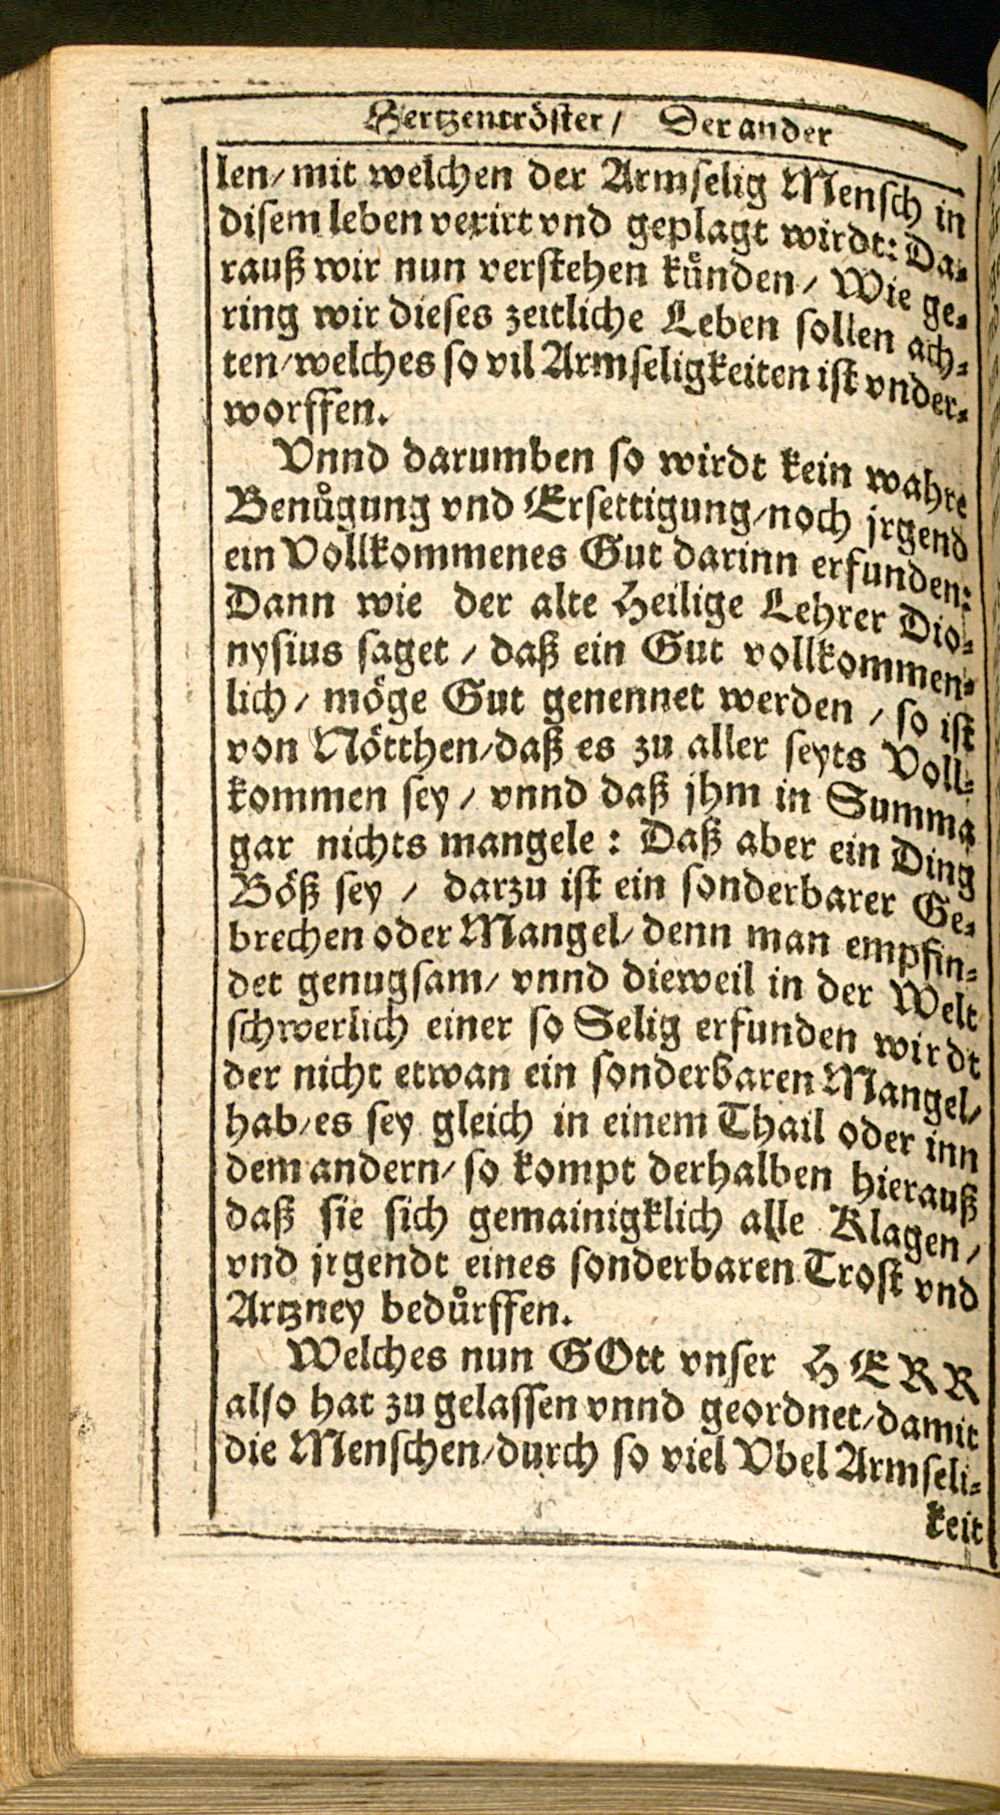 Hertzentröster / Der ander
len / mit welchen der Armselig Mensch in
disem leben vexirt vnd geplagt wirdt: Da-
rauß wir nun verstehen kůnden / Wie ge-
ring wir dieses zeitliche Leben sollen ach-
ten / welches so vil Armseligkeiten ist vnder-
worffen.
Vnnd darumben so wirdt kein wahre
Benůgung vnd Ersettigung / noch jrgend
ein Vollkommenes Gut darinn erfunden:
Dann wie der alte Heilige Lehrer Dio-
nysius saget / daß ein Gut vollkommen-
lich / möge Gut genennet werden / so ist
von Nötthen / daß es zu aller seyts Voll-
kommen sey / vnnd daß jhm in Summa
gar nichts mangele : Daß aber ein Ding
Böß sey / darzu ist ein sonderbarer Ge-
brechen oder Mangel / denn man empfin-
det genugsam / vnnd dieweil in der Welt
schwerlich einer so Selig erfunden wirdt
der nicht etwan ein sonderbaren Mangel /
hab / es sey gleich in einem Thail oder inn
dem andern / so kompt derhalben hierauß
daß sie sich gemainigklich alle Klagen /
vnd jrgendt eines sonderbaren Trost vnd
Artzney bedůrffen.
Welches nun GOtt vnser HERR
also hat zu gelassen vnnd geordnet / damit
die Menschen / durch so viel Vbel Armseli-
keit